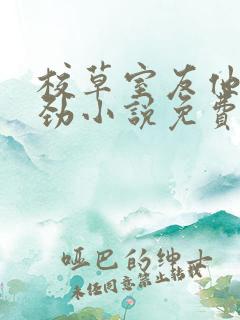 校草室友他
劲小说免费
哑巴的绅士
未经同意禁止转载